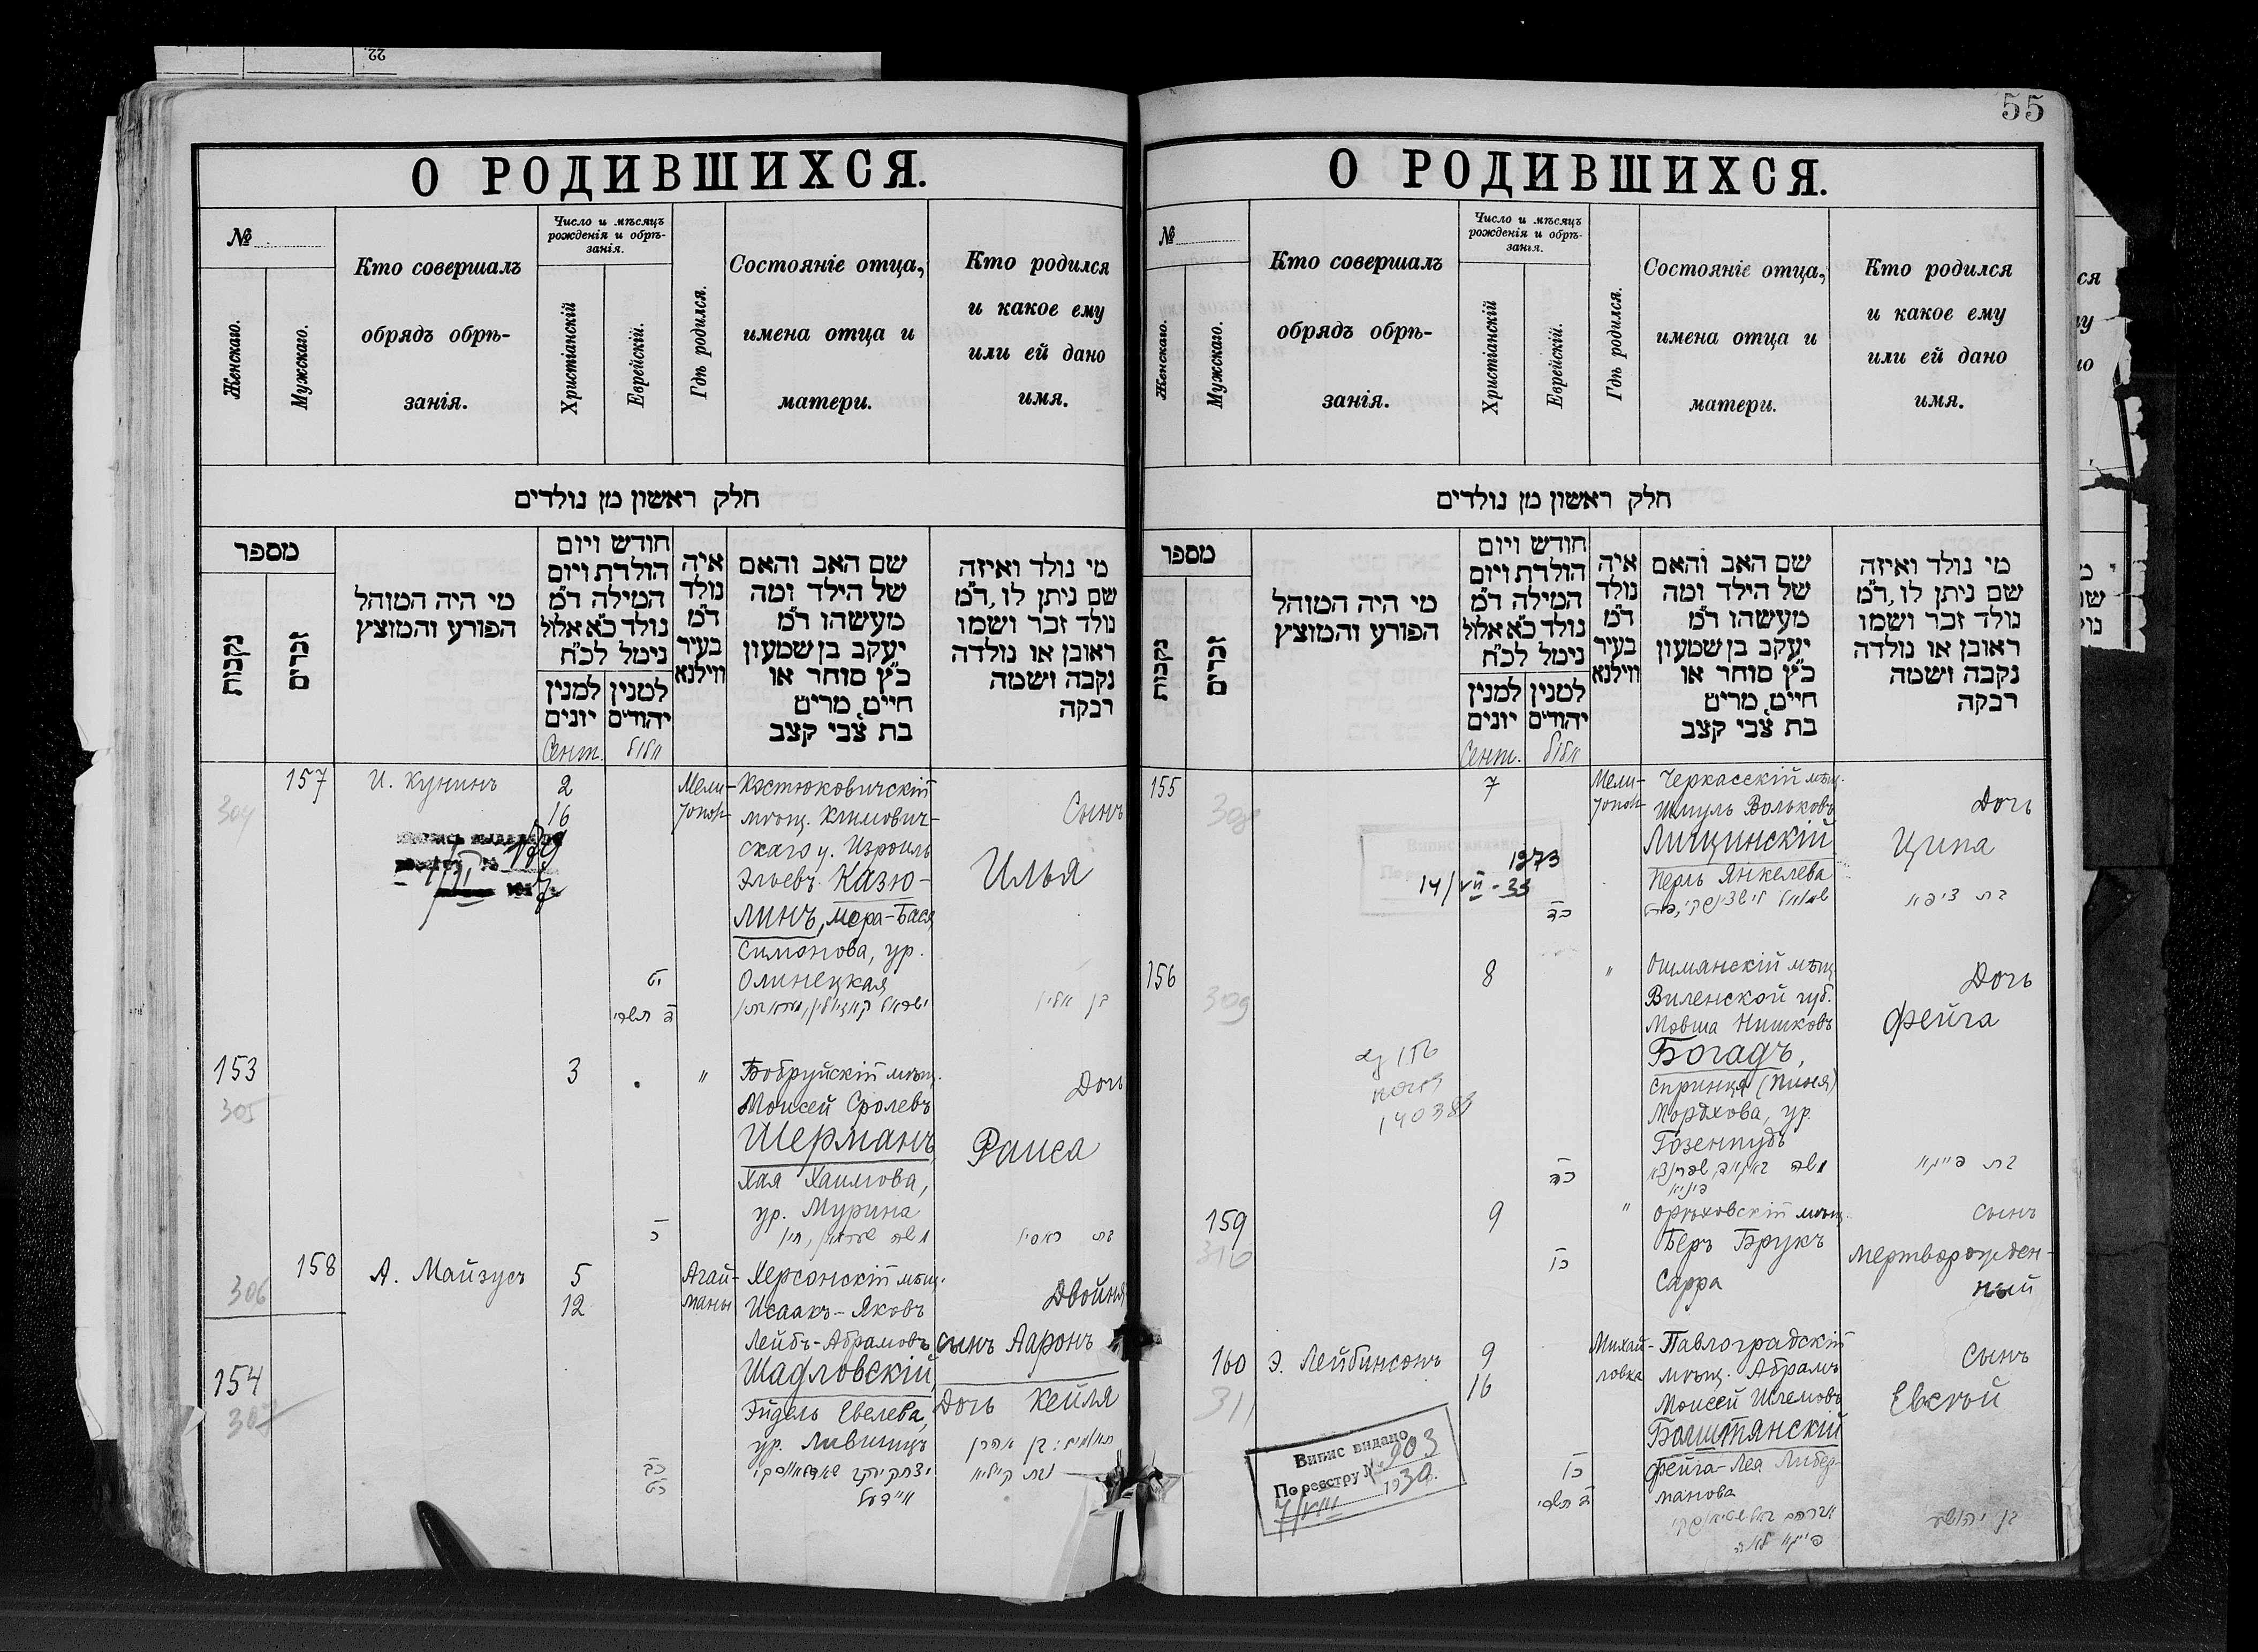 22.
О РОДИВШИХСЯ.
№
Женскаго.
Мужскаго.
Кто совершалъ
обрядъ обрѣ-
занія.
Число и мѣсяцъ
рожденія и обрѣ-
занія.
Христіанскій
Еврейскій.
Гдѣ родился.
Состояніе отца,
имена отца и
матери.
Кто родился
и какое ему
или ей дано
имя.
חלק ראשון מן נולדים
מספר
נקבות
זכרים
מי היה המוהל
הפורע והמוצץ
חודש ויום
הולדת ויום
המילה ד״מ
נולד כ״א אלול
נימל לכ״ח
למנין
יונים
למנין
יהודים
איה
נולד
ד״מ
בעיר
ווילנא
שם האב והאם
של הילד ומה
מעשהו ד״מ
יעקב בן שמעון
כ״ץ סוחר או
חייט, מרים
בת צבי קצב
מי נולד ואיזה
שם ניתן לו, ד״מ
נולד זכר ושמו
ראובן או נולדה
נקבה ושמה
רבקה
Сент.
אלול
157
304
И. Кунинъ
2
16
Мели-
тополь
Костюковичскій
мѣщ. Климович-
скаго у. Израиль
Эльевъ Казю-
линъ, Мера-Бася
Симонова, ур.
Олинецкая
Сынъ
Илья
יט
ה תשרי
153
305
3
"
Бобруйскій мѣщ.
Моисей Сролевъ
Шерманъ,
Хая Хаимова,
ур. Мурина
Дочь
Раиса
כ
158
306
А. Майзусъ
5
12
Агай-
маны
Херсонскій мѣщ.
Исаакъ-Яковъ
Лейбъ-Абрамовъ
Шадловскій,
Эйдель Евелева,
ур. Лившицъ
Двойня
сынъ Ааронъ
154
307
Дочь Кейля
תאומים: בן אהרן
ובת קיילא
כב
כט
55
О РОДИВШИХСЯ.
№
Женскаго.
Мужскаго.
Кто совершалъ
обрядъ обрѣ-
занія.
Число и мѣсяцъ
рожденія и обрѣ-
занія.
Христіанскій
Еврейскій.
Гдѣ родился.
Состояніе отца,
имена отца и
матери.
Кто родился
и какое ему
или ей дано
имя.
חלק ראשון מן נולדים
מספר
נקבות
זכרים
מי היה המוהל
הפורע והמוצץ
חודש ויום
הולדת ויום
המילה ד״מ
נולד כ״א אלול
נימל לכ״ח
למנין
יונים
למנין
יהודים
איה
נולד
ד״מ
בעיר
ווילנא
שם האב והאם
של הילד ומה
מעשהו ד״מ
יעקב בן שמעון
כ״ץ סוחר או
חייט, מרים
בת צבי קצב
מי נולד ואיזה
שם ניתן לו, ד״מ
נולד זכר ושמו
ראובן או נולדה
נקבה ושמה
רבקה
Сент.
אלול
155
308
7
Мели-
тополь
Черкасскій мѣщ.
Шмуль Вольковъ
Лищинскій
Перль Янкелева
Дочь
Ципа
בת ציפא
1973
14/VII-33
כד
156
309
8
"
Ошмянскій мѣщ.
Виленской губ.
Мовша Нишковъ
Богадъ,
Спринця (Пиня)
Мордхова, ур.
Гозенпудъ
Дочь
Фейга
בת פייגא
140383
כה
159
310
9
"
Орѣховскій мѣщ.
Беръ Брукъ
Сарра
сынъ
мертворожден-
ный
כו
160
311
Э. Лейбинсонъ
9
16
Михай-
ловка
Павлоградскій
мѣщ. Абрамъ
Моисей Шлемовъ
Баштянскій
Фейга-Леа Либер-
манова
Сынъ
Евсѣй
בן יהושע
כו
ה תשרי
Випис видано
По реєстру № 903
7/VIII 1939.